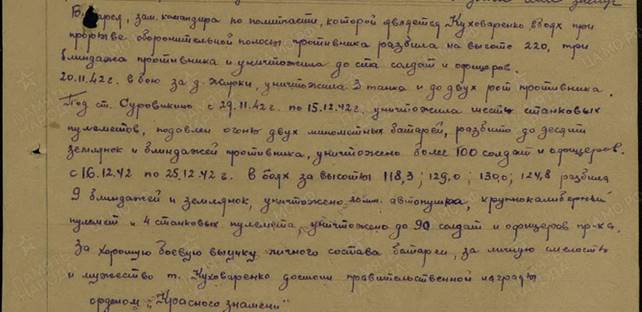 Батарея, зам. командира по политчасти, которой является Кухаваренко в боях при
прорыве оборонительной полосы противника разбила на высоте 220, три
блиндажа противника и уничтожила до ста солдат и офицеров.
20.11.42 г. в бою за д. Жирки, уничтожила 3 танка и до двух рот противника.
Под ст. Суровикино с 29.11.42 г. по 15.12.42 г. уничтожила шесть станковых
пулеметов, подавлен огонь двух минометных батарей, разбито до десяти
землянок и блиндажей противника, уничтожено более 100 солдат и офицеров.
с 16.12.42 по 25.12.42 г. в боях за высоты 118,3; 129,0; 130,0; 124,8 разбила
9 блиндажей и землянок, уничтожено автопушка, крупнокалиберный
пулемет и 4 станковых пулемета, уничтожено до 90 солдат и офицеров пр-ка.
За хорошую боевую выучку личного состава батареи, за личную смелость
и мужество т. Кухаваренко достоин правительственной награды
орденом "Красного знамени"